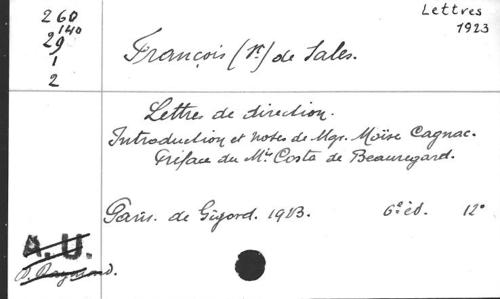 260
140
29
1
2
Lettres
1923
François (St) de Sales.
Lettres de direction.
Introduction et notes de Mgr. Moïse Cagnac.
Préface du Mis Costa de Beauregard.
Paris. de Gigord. 1923. 6e éd. 12°
A.U.